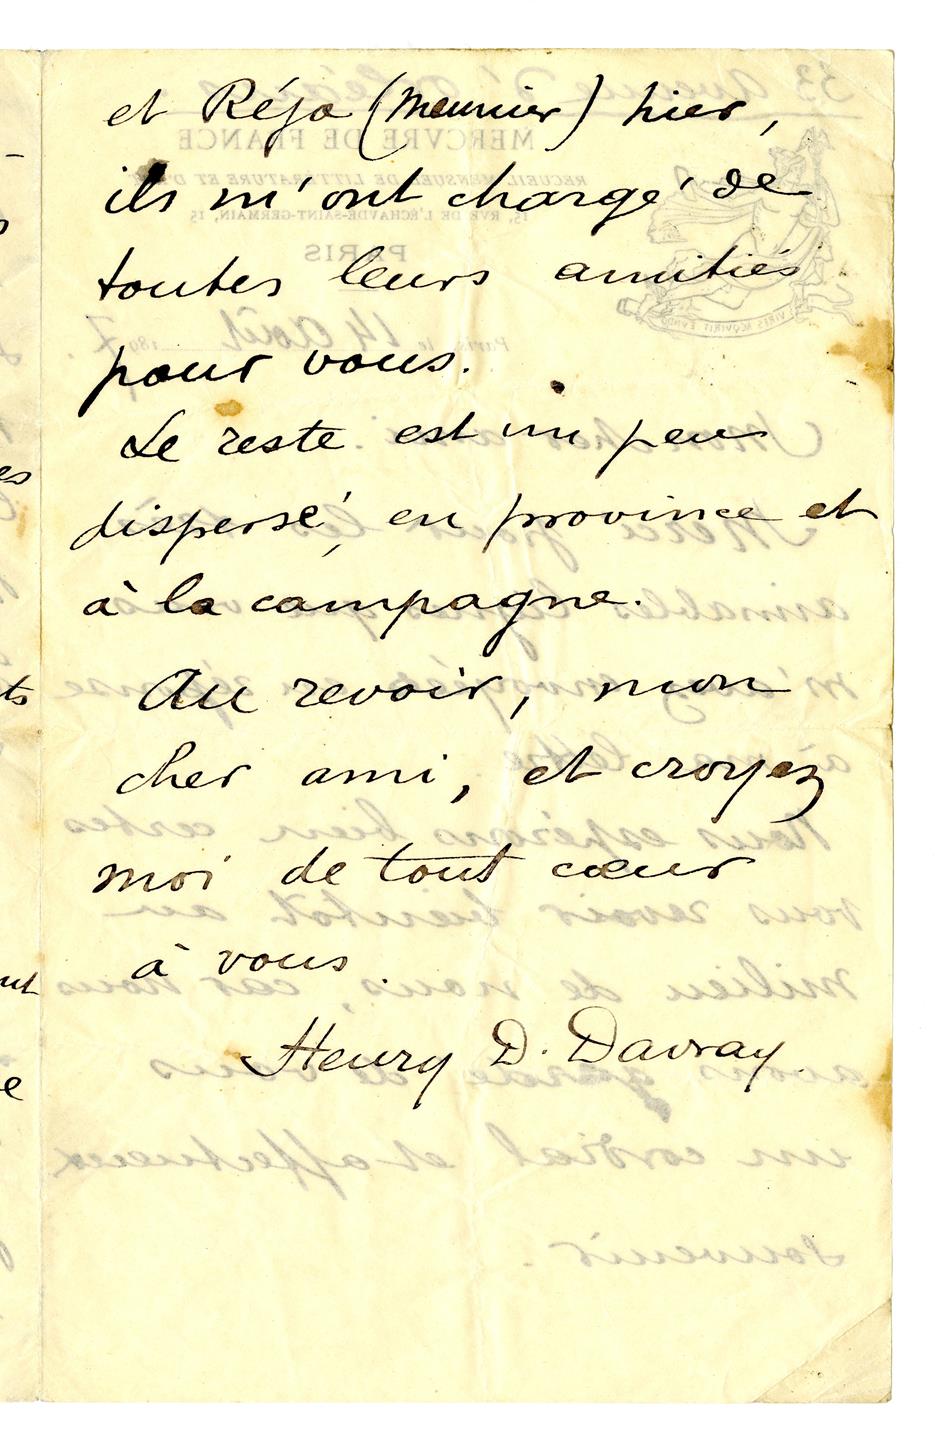 et Réja (Meunier) hier,
ils m'ont chargé de
toutes leurs amitiés
pour vous.
Le reste est un peu
dispersé, en province et
à la campagne.
Au revoir, mon
cher ami, et croyez
moi de tout cœur
à vous.
Henry D. Davray.